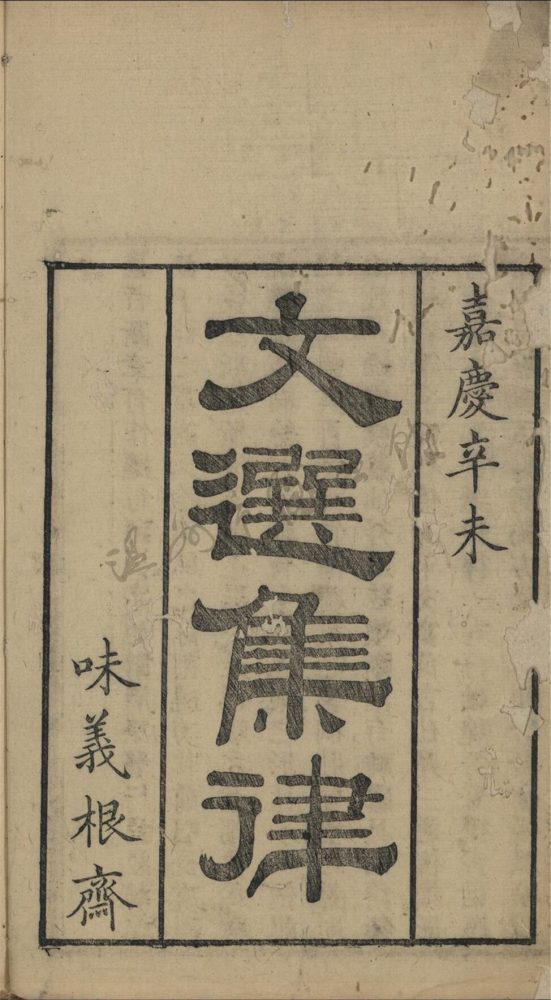 嘉慶辛未
文選集律
味義根齋